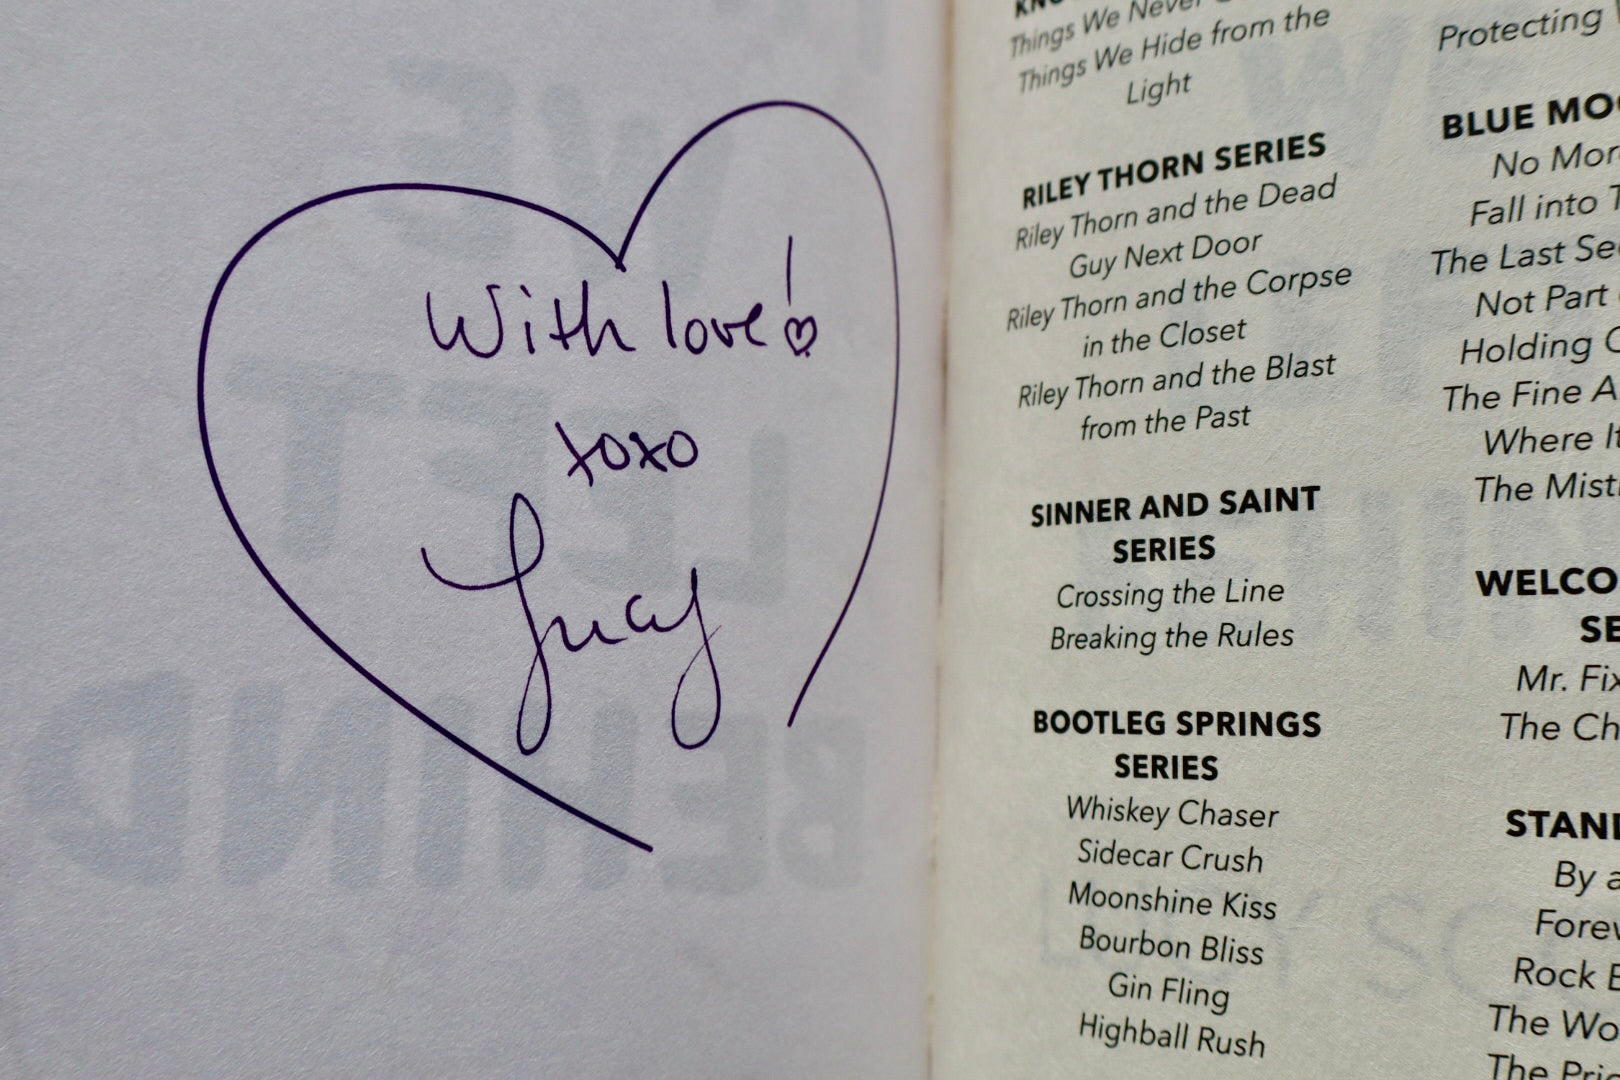 With love!
xoxo
Lucy
Things We Never
Things We Hide from the
Light
RILEY THORN SERIES
Riley Thorn and the Dead
Guy Next Door
Riley Thorn and the Corpse
in the Closet
Riley Thorn and the Blast
from the Past
SINNER AND SAINT
SERIES
Crossing the Line
Breaking the Rules
BOOTLEG SPRINGS
SERIES
Whiskey Chaser
Sidecar Crush
Moonshine Kiss
Bourbon Bliss
Gin Fling
Highball Rush
Protecting
BLUE
No
Fall into
The Last
Not Part
Holding
The Fine
Where
The
Mr.
The
By
Rock
The
The
WE
LET
BEHIND